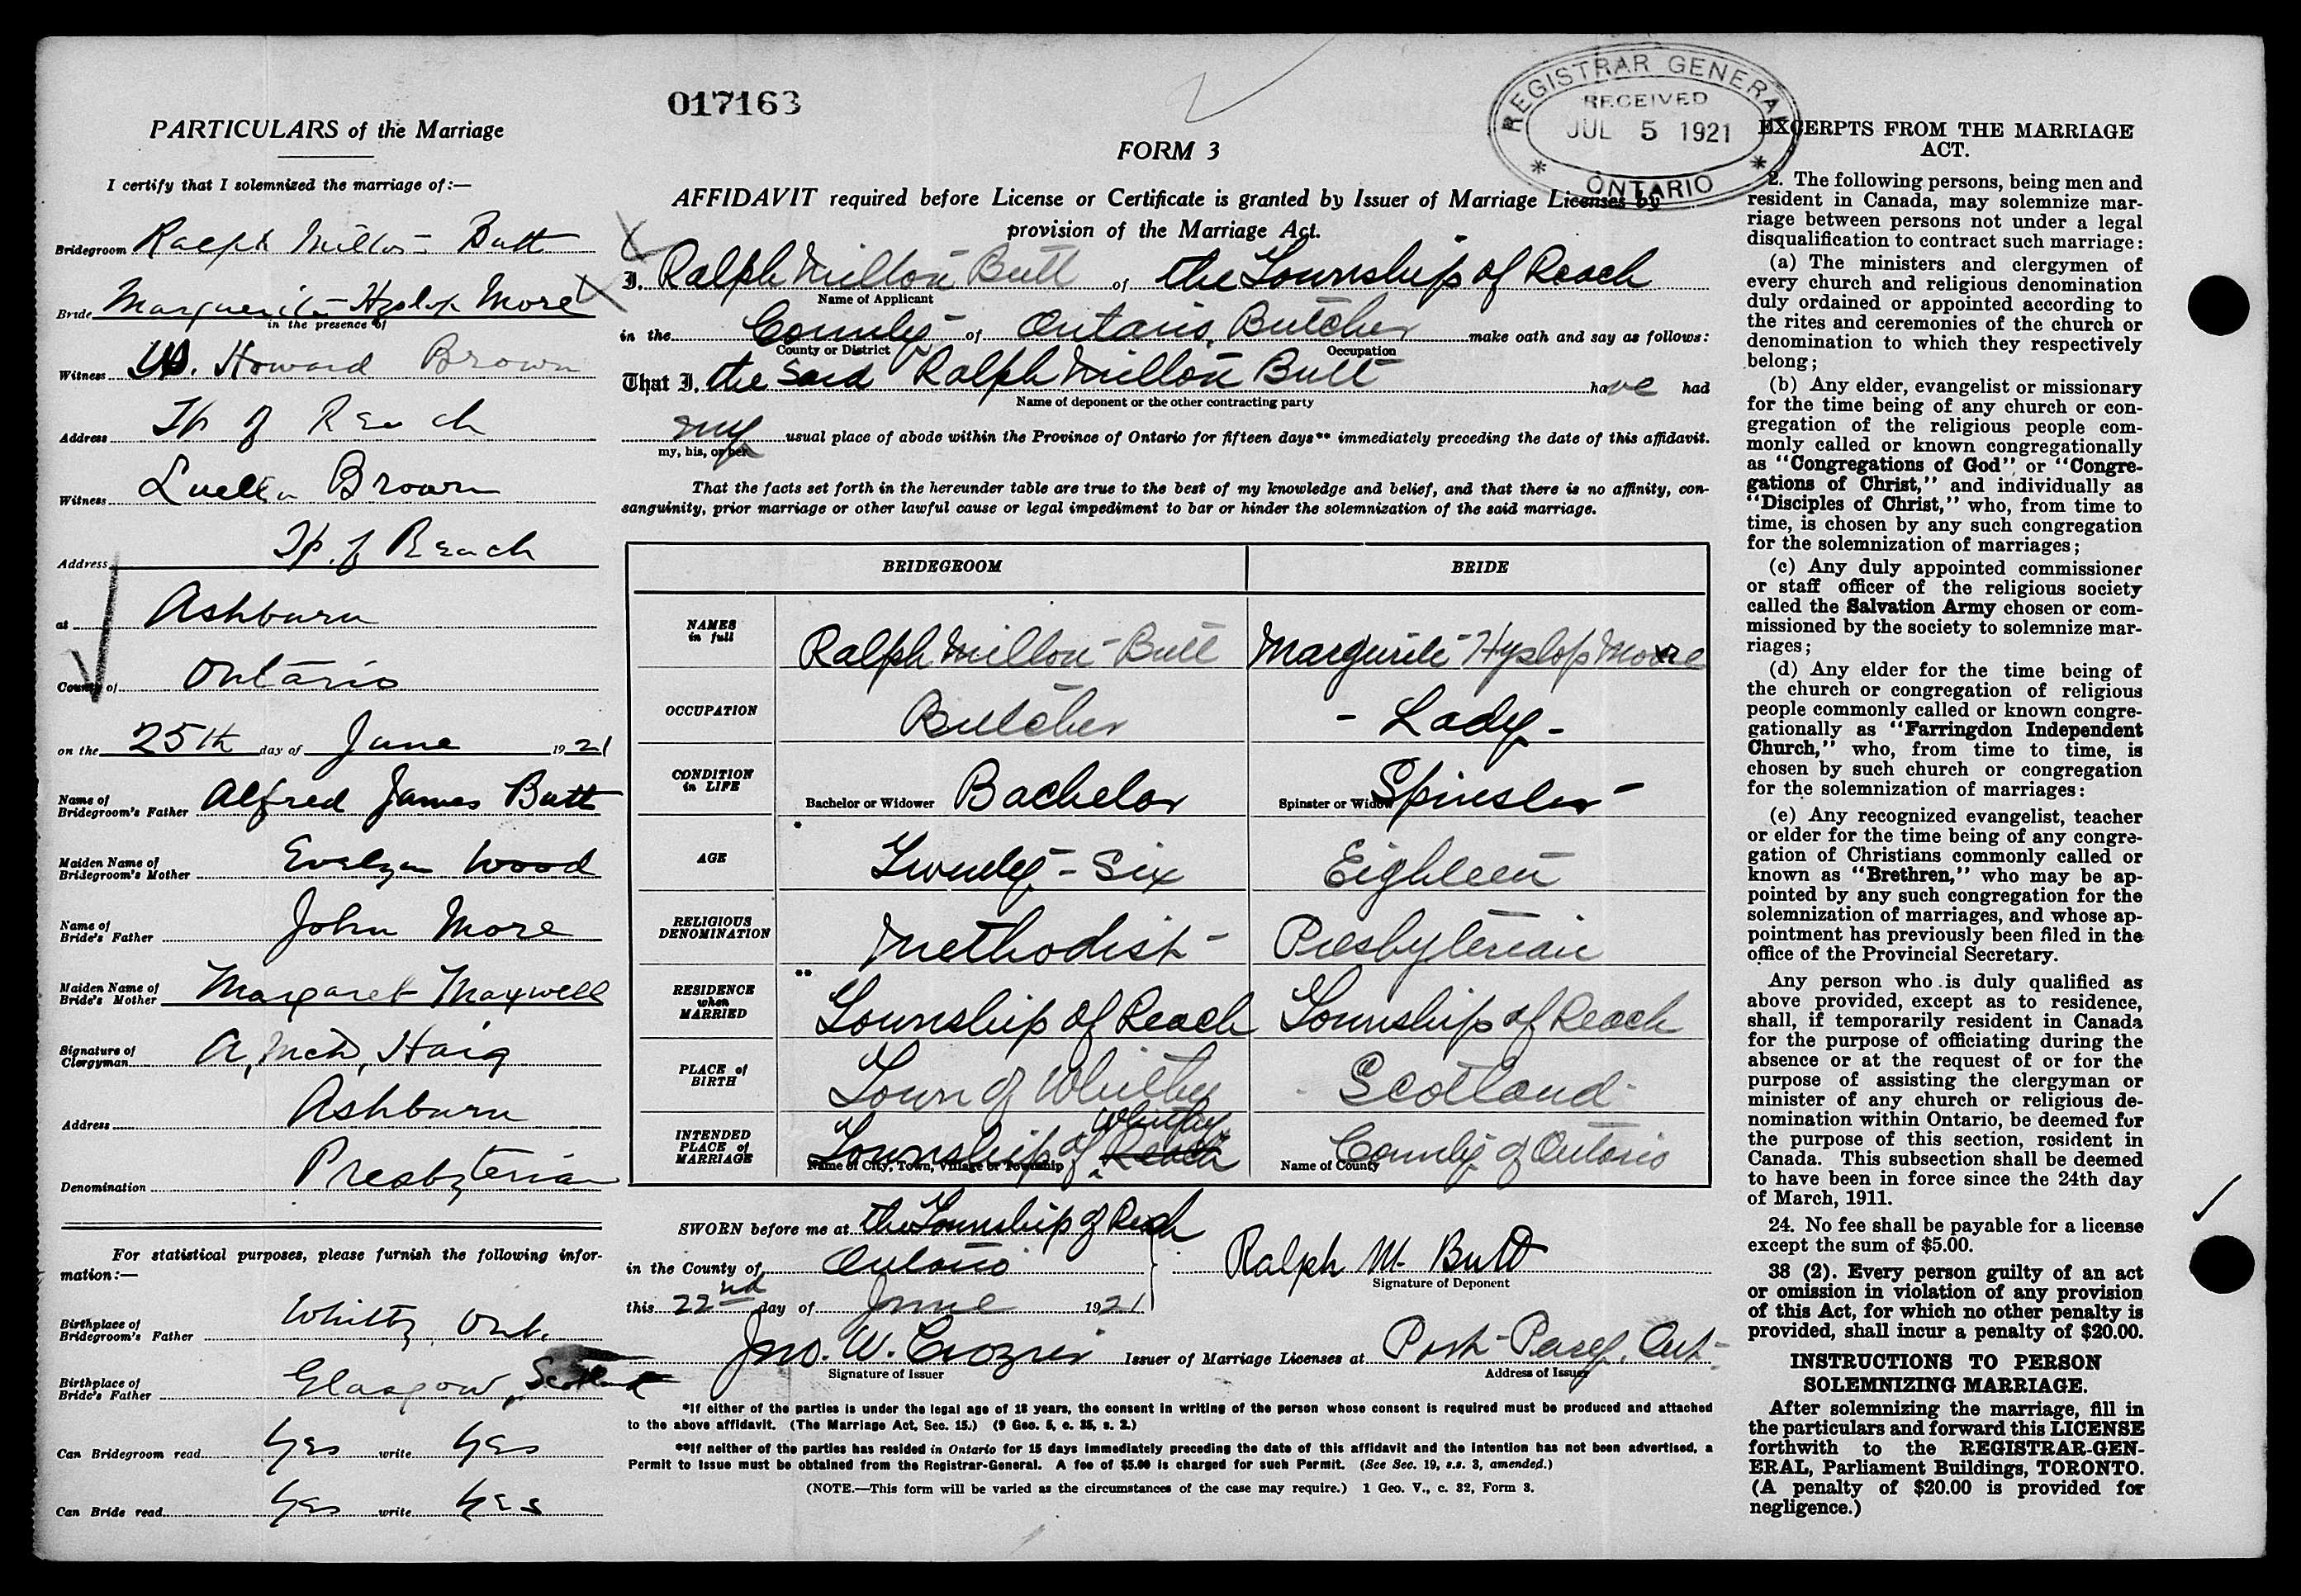 017163
REGISTRAR GENERAL
RECEIVED
JUL 5 1921
ONTARIO
PARTICULARS of the Marriage
I certify that I solemnized the marriage of:—
Bridegroom Ralph Milton Butt
Bride Marguerite Hyslop More
in the presence of
Witness W. Howard Brown
Address Tp of Reach
Witness Luella Brown
Address Tp. of Reach
at Ashburn
County of Ontario
on the 25th day of June 1921
Name of Bridegroom's Father Alfred James Butt
Maiden Name of Bridegroom's Mother Evelyn Wood
Name of Bride's Father John More
Maiden Name of Bride's Mother Margaret Maxwell
Signature of Clergyman A. McD. Haig
Address Ashburn
Denomination Presbyterian
For statistical purposes, please furnish the following infor-
mation:—
Birthplace of Bridegroom's Father Whitby, Ont.
Birthplace of Bride's Father Glasgow, Scotland
Can Bridegroom read Yes write Yes
Can Bride read Yes write Yes
FORM 3
AFFIDAVIT required before License or Certificate is granted by Issuer of Marriage Licenses by
provision of the Marriage Act.
I, Ralph Milton Butt of the Township of Reach
Name of Applicant
in the County of Ontario, Butcher make oath and say as follows:
County or District Occupation
That I, the said Ralph Milton Butt have had
Name of deponent or the other contracting party
my usual place of abode within the Province of Ontario for fifteen days** immediately preceding the date of this affidavit.
my, his, or her
That the facts set forth in the hereunder table are true to the best of my knowledge and belief, and that there is no affinity, con-
sanguinity, prior marriage or other lawful cause or legal impediment to bar or hinder the solemnization of the said marriage.
BRIDEGROOM BRIDE
NAMES in full Ralph Milton Butt Marguerite Hyslop More
OCCUPATION Butcher - Lady -
CONDITION in LIFE Bachelor or Widower Bachelor Spinster or Widow Spinster
* AGE Twenty-Six Eighteen
RELIGIOUS DENOMINATION Methodist Presbyterian
** RESIDENCE when MARRIED Township of Reach Township of Reach
PLACE of BIRTH Town of Whitby Scotland
INTENDED PLACE of MARRIAGE Township of Whitby Reach County of Ontario
Name of City, Town, Village or Township Name of County
SWORN before me at the Township of Reach
in the County of Ontario
this 22nd day of June 1921
Ralph M. Butt
Signature of Deponent
Jno. W. Crozier Issuer of Marriage Licenses at Port Perry, Ont.
Signature of Issuer Address of Issuer
*If either of the parties is under the legal age of 18 years, the consent in writing of the person whose consent is required must be produced and attached
to the above affidavit. (The Marriage Act, Sec. 15.) (9 Geo. 5, c. 35, s. 2.)
**If neither of the parties has resided in Ontario for 15 days immediately preceding the date of this affidavit and the intention has not been advertised, a
Permit to issue must be obtained from the Registrar-General. A fee of $5.00 is charged for such Permit. (See Sec. 19, s.s. 3, amended.)
(NOTE.—This form will be varied as the circumstances of the case may require.) 1 Geo. V., c. 32, Form 3.
EXCERPTS FROM THE MARRIAGE
ACT.
2. The following persons, being men and
resident in Canada, may solemnize mar-
riage between persons not under a legal
disqualification to contract such marriage:
(a) The ministers and clergymen of
every church and religious denomination
duly ordained or appointed according to
the rites and ceremonies of the church or
denomination to which they respectively
belong;
(b) Any elder, evangelist or missionary
for the time being of any church or con-
gregation of the religious people com-
monly called or known congregationally
as "Congregations of God" or "Congre-
gations of Christ," and individually as
"Disciples of Christ," who, from time to
time, is chosen by any such congregation
for the solemnization of marriages;
(c) Any duly appointed commissioner
or staff officer of the religious society
called the Salvation Army chosen or com-
missioned by the society to solemnize mar-
riages;
(d) Any elder for the time being of
the church or congregation of religious
people commonly called or known congre-
gationally as "Farringdon Independent
Church," who, from time to time, is
chosen by such church or congregation
for the solemnization of marriages:
(e) Any recognized evangelist, teacher
or elder for the time being of any congre-
gation of Christians commonly called or
known as "Brethren," who may be ap-
pointed by any such congregation for the
solemnization of marriages, and whose ap-
pointment has previously been filed in the
office of the Provincial Secretary.
Any person who is duly qualified as
above provided, except as to residence,
shall, if temporarily resident in Canada
for the purpose of officiating during the
absence or at the request of or for the
purpose of assisting the clergyman or
minister of any church or religious de-
nomination within Ontario, be deemed for
the purpose of this section, resident in
Canada. This subsection shall be deemed
to have been in force since the 24th day
of March, 1911.
24. No fee shall be payable for a license
except the sum of $5.00.
38 (2). Every person guilty of an act
or omission in violation of any provision
of this Act, for which no other penalty is
provided, shall incur a penalty of $20.00.
INSTRUCTIONS TO PERSON
SOLEMNIZING MARRIAGE.
After solemnizing the marriage, fill in
the particulars and forward this LICENSE
forthwith to the REGISTRAR-GEN-
ERAL, Parliament Buildings, TORONTO.
(A penalty of $20.00 is provided for
negligence.)